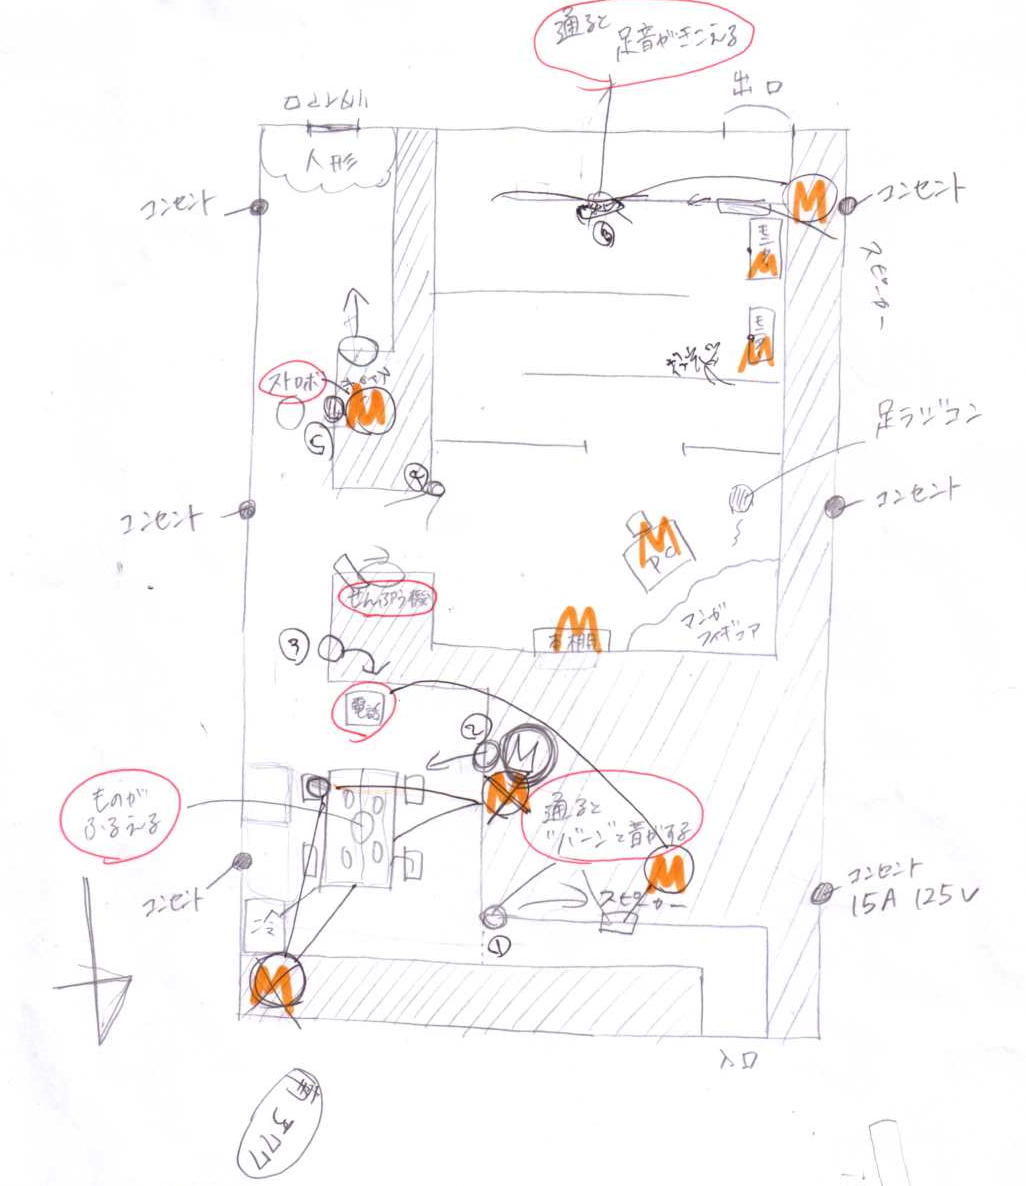 通ると
足音がきこえる
出口
人形
コンセント
コンセント
モニタ
スピーカー
モニタ
ストロボ
M
M
M
M
5
足ラジコン
コンセント
コンセント
4
M
PC
ぜんぷう機
マンガ
フィギュア
M
本棚
3
電話
2
M
M
ものが
ふるえる
通ると
"バーン"と音がする
M
コンセント
コンセント
15A 125V
スピーカー
冷
1
M
入口